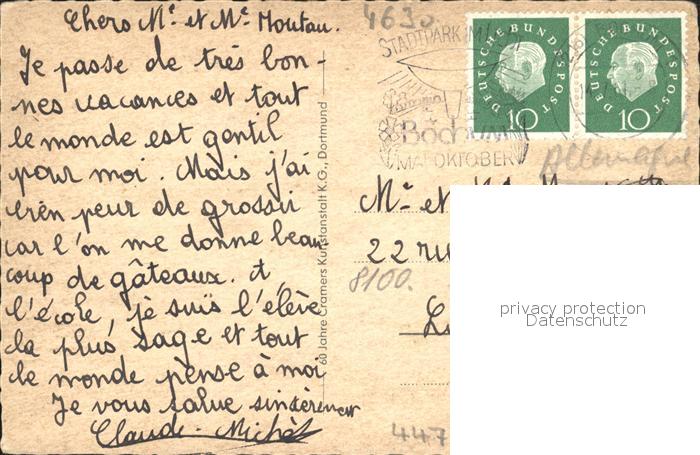 Chers Mr et Me Moutau.
Je passe de très bon-
nes vacances et tout
le monde est gentil
pour moi. Mais j'ai
bien peur de grossir
car l'on me donne beau
coup de gâteaux. A
l'école, je suis l'elève
la plus sage et tout
le monde pense à moi
Je vous salue sincèrement
Claude-Michèl
60 Jahre Cramers Kunstanstalt K.G., Dortmund
4630
STADTPARK IM
Bochum
MAI-OKTOBER
DEUTSCHE BUNDESPOST
10
DEUTSCHE BUNDESPOST
10
Allemagne
Mr et
22 ru
8100.
447
privacy protection
Datenschutz